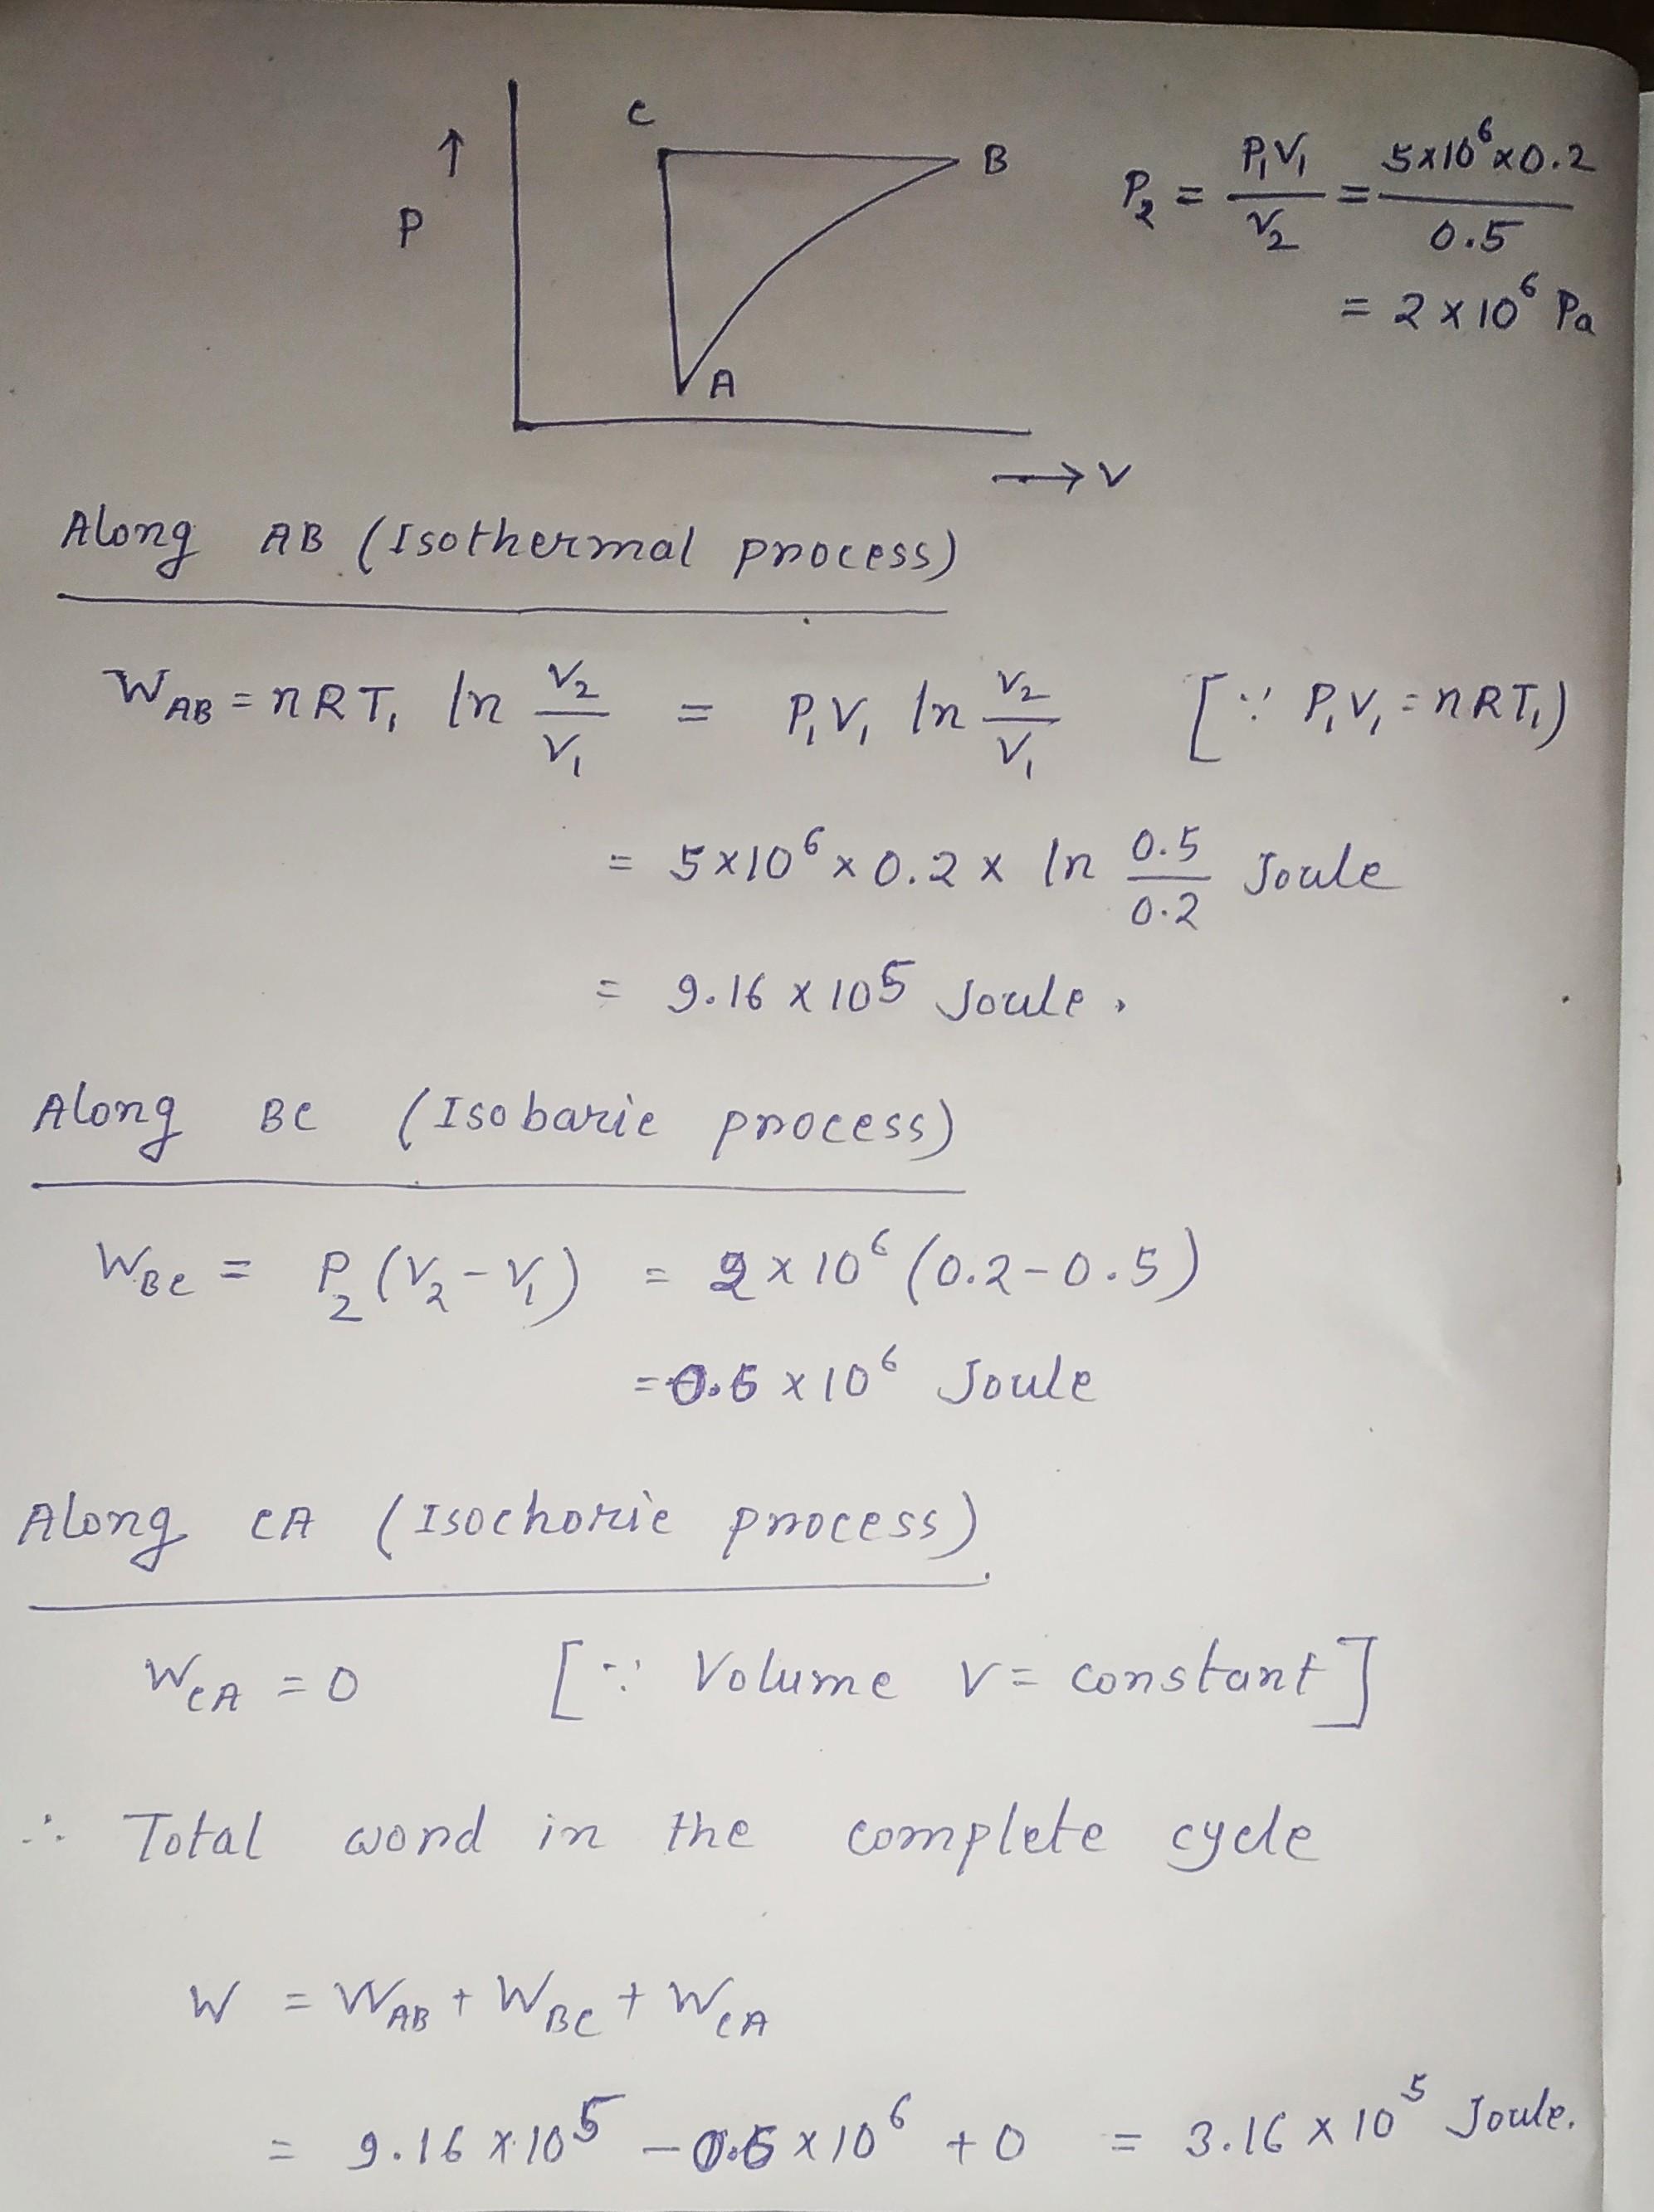 C
B
↑
P
A
→ V
P₂ = P₁V₁/V₂ = 5x10⁶x0.2/0.5
= 2 x 10⁶ Pa
Along AB (Isothermal process)
W_AB = nRT₁ ln V₂/V₁ = P₁V₁ ln V₂/V₁ [∵ P₁V₁ = nRT₁)
= 5x10⁶ x 0.2 x ln 0.5/0.2 Joule
= 9.16 x 10⁵ Joule.
Along BC (Isobaric process)
W_BC = P₂(V₂ - V₁) = 2 x 10⁶ (0.2 - 0.5)
= -0.6 x 10⁶ Joule
Along CA (Isochoric process)
W_CA = 0 [∵ Volume V = constant]
∴ Total word in the complete cycle
W = W_AB + W_BC + W_CA
= 9.16 x 10⁵ - 0.6 x 10⁶ + 0 = 3.16 x 10⁵ Joule.